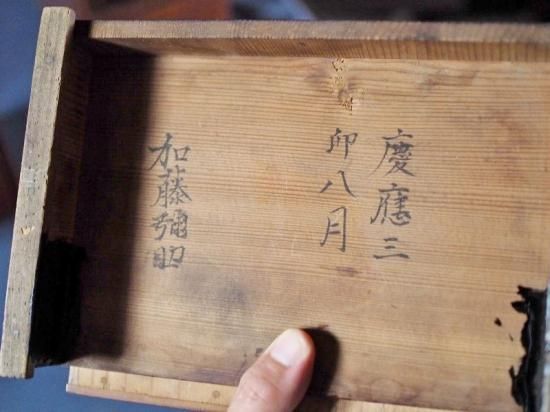 慶應三
卯八月
加藤弥助